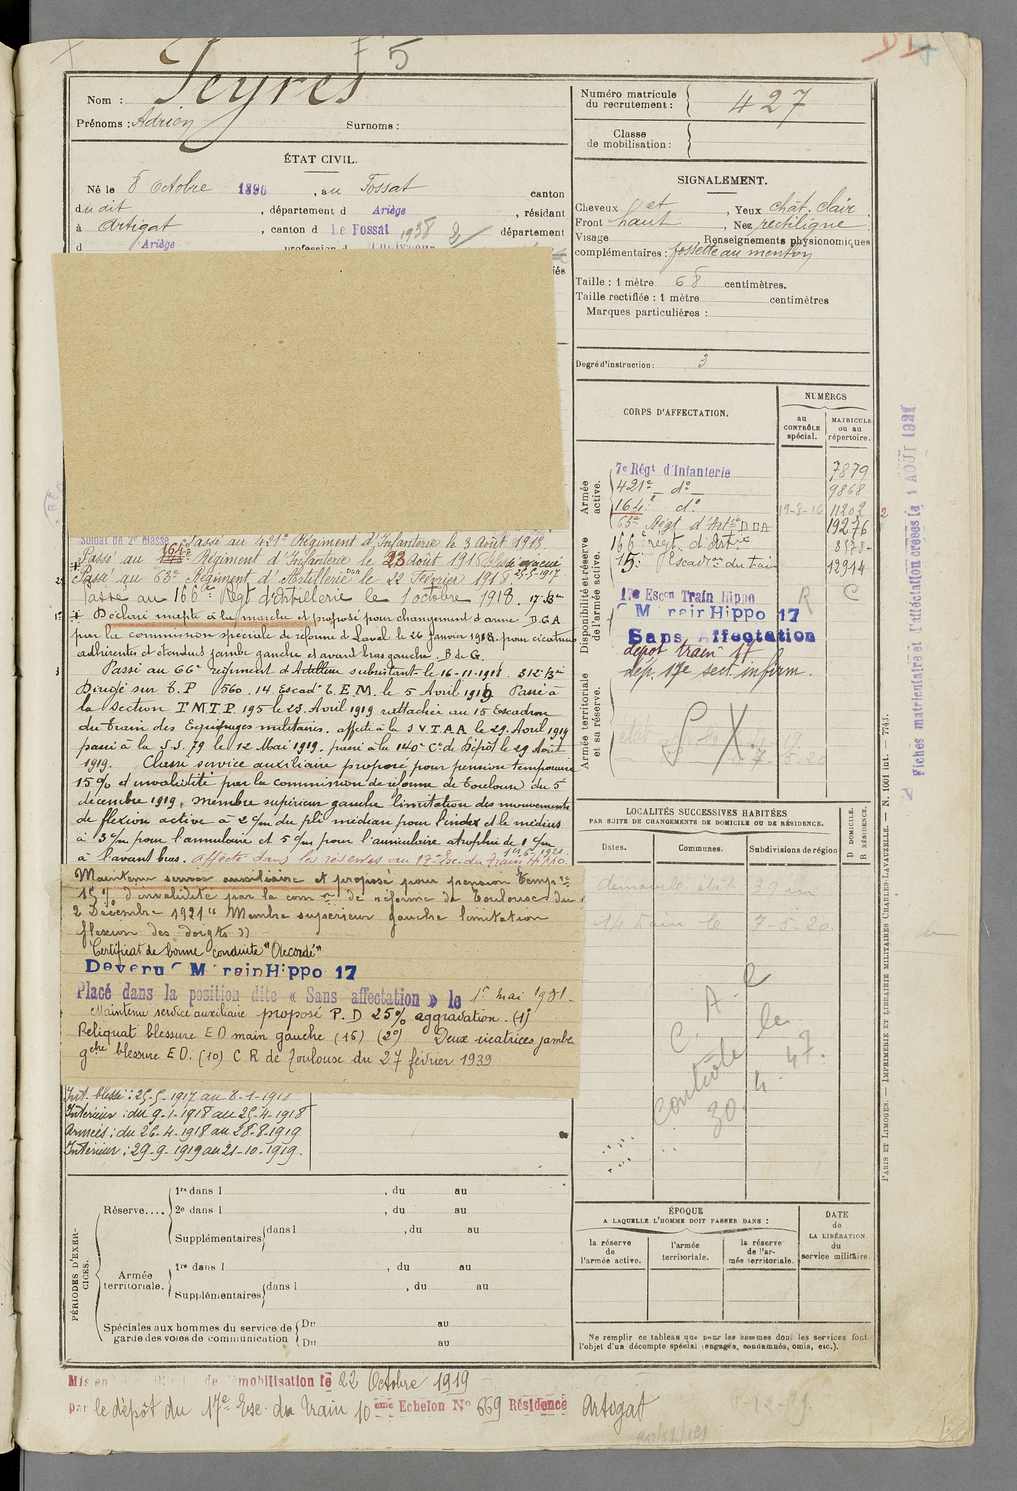 F 5
Nom : Peyres
Prénoms : Adrien Surnoms :
Numéro matricule du recrutement : 427
Classe de mobilisation :
ÉTAT CIVIL.
Né le 8 Octobre 1896, au Fossat canton
dudit, département d Ariège, résidant
à Artigat, canton d Le Fossat 1938 département
d Ariège profession d Cultivateur
SIGNALEMENT.
Cheveux Yeux chât. clair
Front haut, Nez rectiligne
Visage Renseignements physionomiques
complémentaires : fossette au menton
Taille : 1 mètre 68 centimètres.
Taille rectifiée : 1 mètre centimètres
Marques particulières :
Degré d'instruction : 3
CORPS D'AFFECTATION.
NUMÉROS
au CONTRÔLE spécial.
MATRICULE ou au répertoire.
Armée active.
7e Régt d'Infanterie 7879
421e do 9868
164e do 19-8-16 11202
63e Régt d'Artie D C A 19276
166e régt d'Artie 8578
15e Escadron du train 12914
Disponibilité et réserve de l'armée active.
17e Escon Train Hippo R C
C M Train Hippo 17
Sans Affectation
dépôt train 17
dép. 17e sect. infirm.
Armée territoriale et sa réserve.
Soldat de 2e classe Passé au 421e Régiment d'Infanterie le 3 Août 1915.
Passé au 164e Régiment d'Infanterie le 23 Août 1915 évacué
Passé au 63e Régiment d'Artillerie DCA le 22 Février 1918 25-5-1917
Passé au 166e Régt d'Artillerie le 1 octobre 1918. 17e Bie
Déclaré inapte à la marche et proposé pour changement d'arme D.C.A
par la commission spéciale de réforme de Laval le 26 janvier 1918 pour cicatrices
adhérentes et étendues jambe gauche et avant bras gauche. B de G.
Passé au 66e régiment d'Artillerie subsistant le 16-11-1918. 312e Bie
Dirigé sur T.P 560. 14 Escad T.E.M. le 5 Avril 1919 Passé à
la Section T.M.T.P. 195 le 23 Avril 1919 rattachée au 15 Escadron
du train des Equipages militaires. affecté à la S V.T.A.A le 29 Avril 1919
passé à la S.S. 79 le 12 Mai 1919. passé à la 140e Cie de Dépôt le 29 Août
1919. Classé service auxiliaire proposé pour pension temporaire
15% d'invalidité par la commission de réforme de Toulouse du 5
décembre 1919, membre supérieur gauche limitation des mouvements
de flexion active à 2 c/m du pli médian pour l'index et le médius
à 3 c/m pour l'annulaire et 5 c/m pour l'auriculaire atrophie de 1 c/m
à l'avant bras. affecté dans les réserves au 17e Esc. du train Hippo.
Maintenu service auxiliaire et proposé pour pension tempre
15% d'invalidité par la comon de réforme de Toulouse du
2 Décembre 1921 " Membre supérieur gauche limitation
flexion des doigts "
Certificat de bonne conduite "Accordé"
Devenu C M Train Hippo 17
Placé dans la position dite « Sans affectation » le 1er mai 1931.
Maintenu service auxiliaire proposé P. D 25% aggravation. (1°)
Reliquat blessure E D main gauche (15) (2°) Deux cicatrices jambe
gche blessure E D. (10) C R de Toulouse du 27 février 1939
Int. blessé : 25-5-1917 au 8-1-1918
Intérieur : du 9-1-1918 au 25-4-1918
Armées : du 26-4-1918 au 28-8-1919
Intérieur : 29-9-1919 au 21-10-1919.
LOCALITÉS SUCCESSIVES HABITÉES
PAR SUITE DE CHANGEMENTS DE DOMICILE OU DE RÉSIDENCE.
Dates. Communes. Subdivisions de région
D DOMICILE. R RÉSIDENCE.
14 train le 7-5-20
C. A. C le
contrôle
30 4 47.
PÉRIODES D'EXERCICES.
Réserve.... 1re dans l , du au
2e dans l , du au
Supplémentaires dans l , du au
Armée territoriale. 1re dans l , du au
Supplémentaires dans l , du au
Spéciales aux hommes du service de garde des voies de communication Du au
Du au
ÉPOQUE
A LAQUELLE L'HOMME DOIT PASSER DANS :
la réserve de l'armée active.
l'armée territoriale.
la réserve de l'armée territoriale.
DATE de LA LIBÉRATION du service militaire.
Ne remplir ce tableau que pour les hommes dont les services font
l'objet d'un décompte spécial (engagés, condamnés, omis, etc.).
Mis en de démobilisation le 22 Octobre 1919
par le dépôt du 17e Esc. du train 10ème Echelon No 669 Résidence Artigat
Fiches matriculaire et d'affectation créées le 1 AOUT 1921
PARIS ET LIMOGES. — IMPRIMERIE ET LIBRAIRIE MILITAIRES CHARLES-LAVAUZELLE. — N. 1001 lat. — 7743.